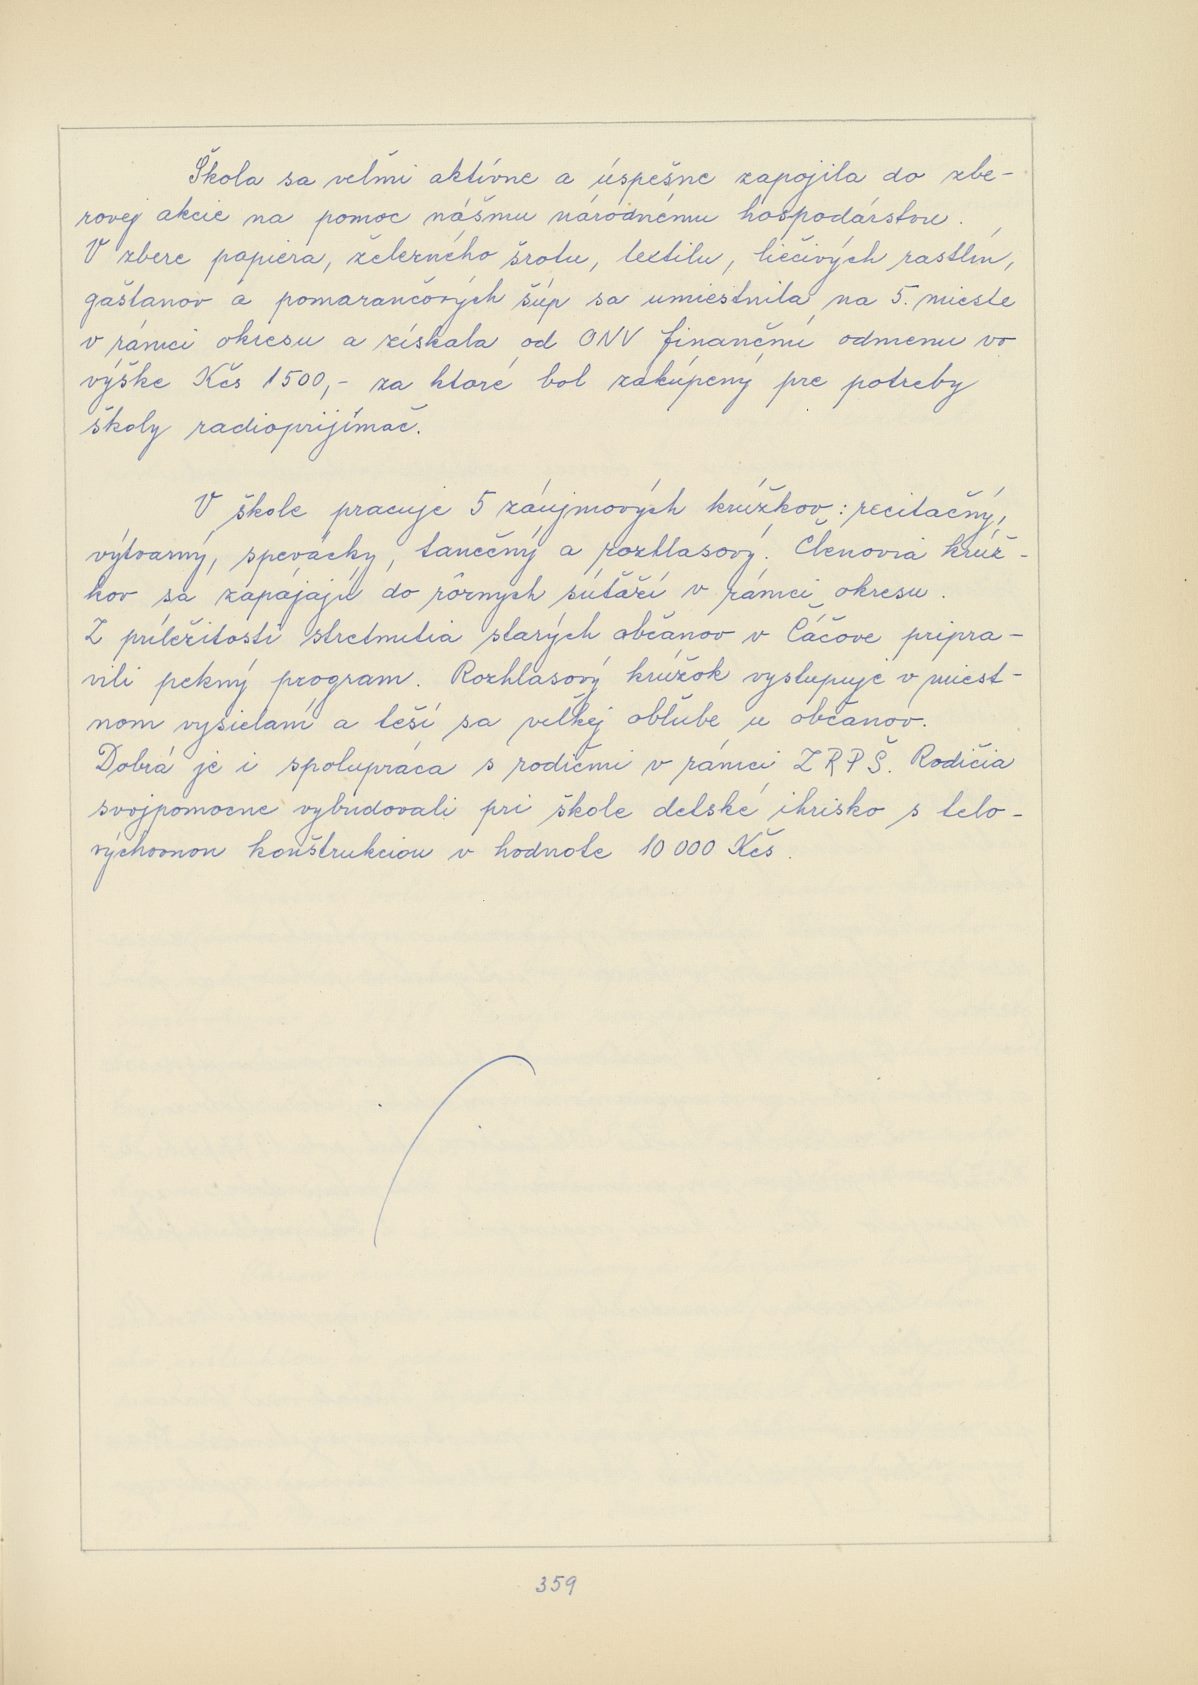 Škola sa veľmi aktívne a úspešne zapojila do zbe-
rovej akcie na pomoc nášmu národnému hospodárstvu.
V zbere papiera, železného šrotu, textilu, liečivých rastlín,
gaštanov a pomarančových šúp sa umiestnila na 5. mieste
v rámci okresu a získala od ONV finančnú odmenu vo
výške Kčs 1500,- za ktoré bol zakúpený pre potreby
školy radioprijímač.
V škole pracuje 5 záujmových krúžkov: recitačný,
výtvarný, spevácky, tanečný a rozhlasový. Členovia krúž-
kov sa zapájajú do rôrnych súťaží v rámci okresu.
Z príležitosti stretnutia starých občanov v Čáčove pripra-
vili pekný program. Rozhlasový krúžok vystupuje v miest-
nom vysielaní a teší sa veľkej obľube u občanov.
Dobrá je i spolupráca s rodičmi v rámci ZRPŠ. Rodičia
svojpomocne vybudovali pri škole detské ihrisko s telo-
výchovnou konštrukciou v hodnote 10 000 Kčs.
359